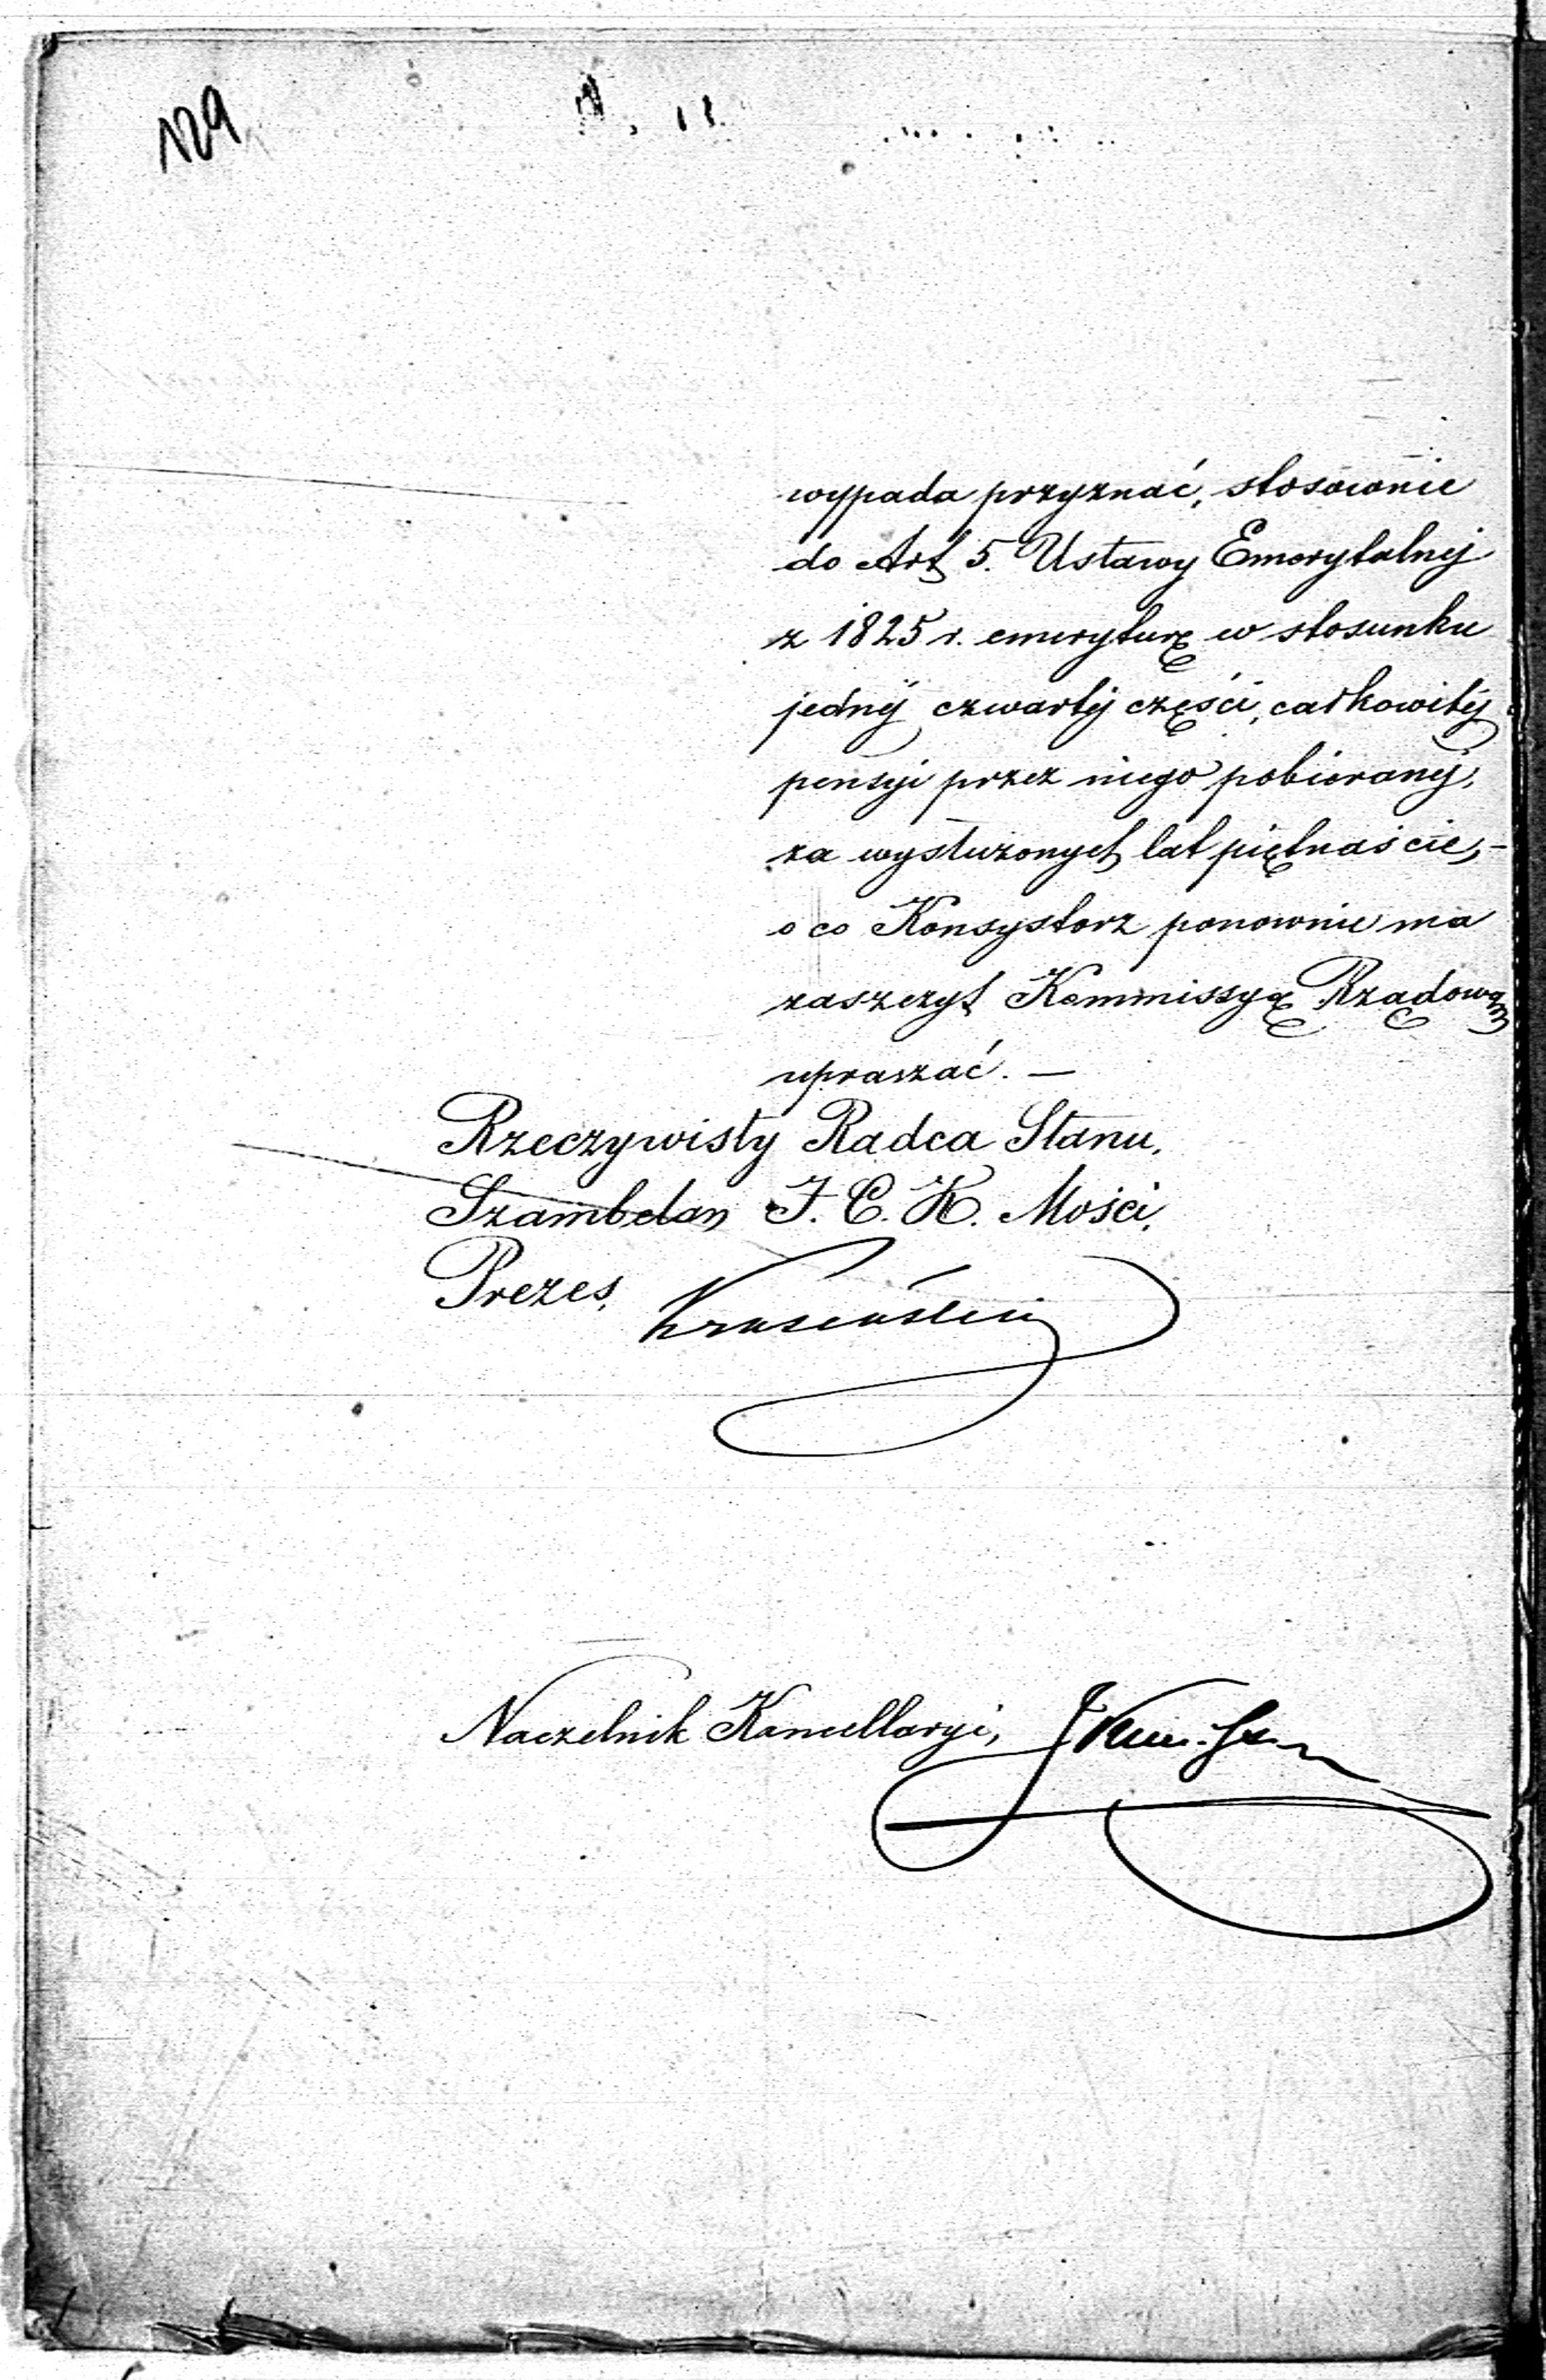 129
wypada przyznać, stosownie
do Art 5. Ustawy Emerytalnej
z 1825 r. emeryturę w stosunku
jednéj czwartéj części, całkowitéj
pensyi przez niego pobieranéj,
za wysłużonych lat piętnaście, –
o co Konsystorz ponownie ma
zaszczyt Kommissyę Rządową
upraszać. —
Rzeczywisty Radca Stanu,
Szambelan J. C. K. Mości,
Prezes, Krusenstern
Naczelnik Kancellaryi,